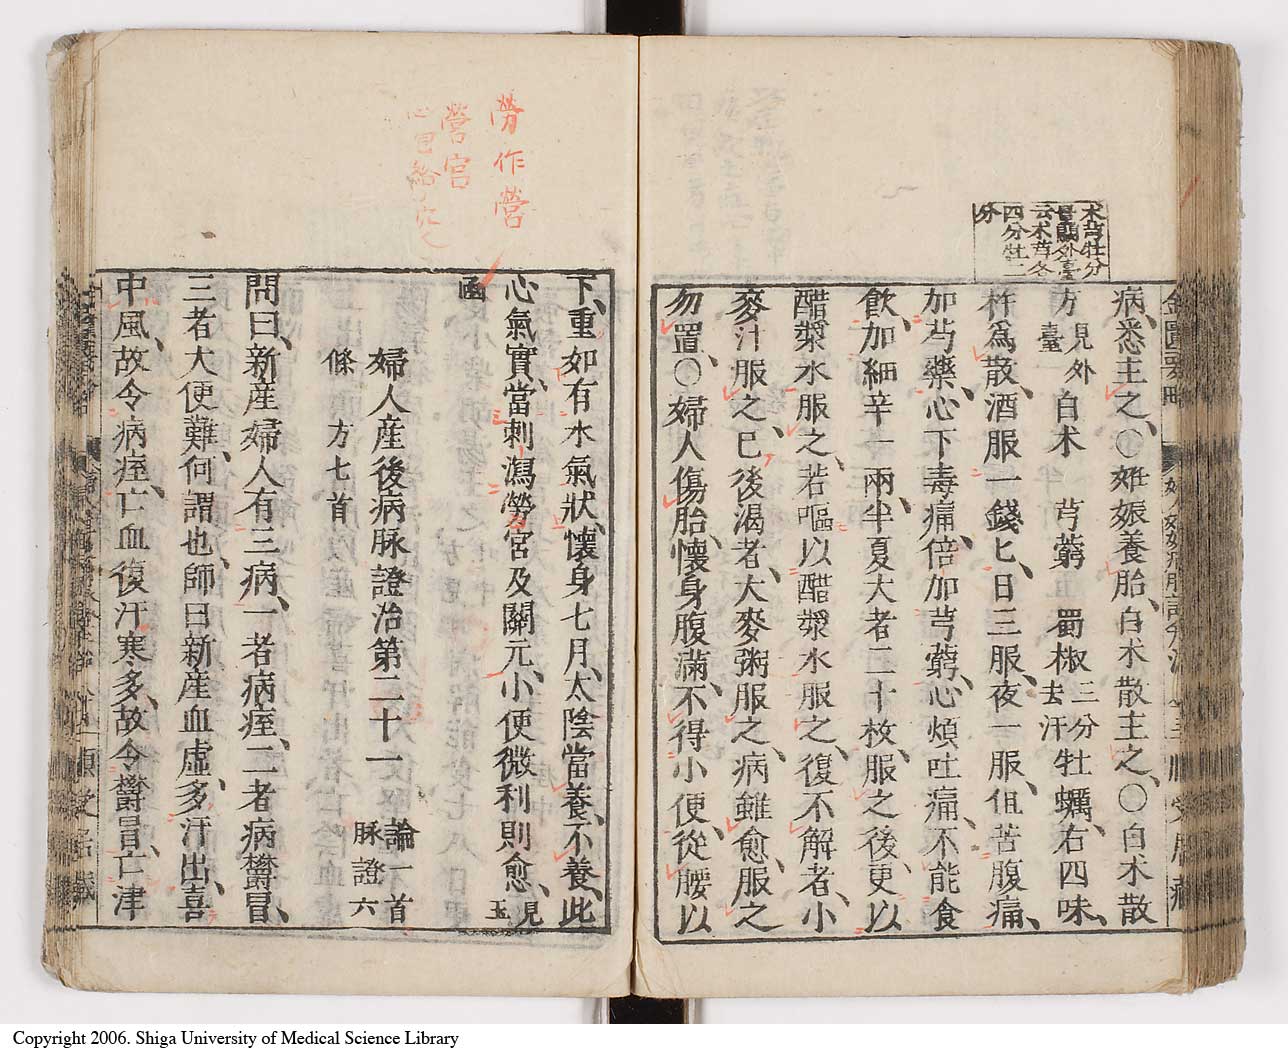 朮芎牡分
量闕外臺
云朮芎各
四分牡二
分
病悉主之○妊娠養胎白朮散主之○白朮散
方見外臺 白朮 芎藭 蜀椒三分去汗 牡蠣右四味
杵爲散酒服一錢匕日三服夜一服但苦腹痛
加芍藥心下毒痛倍加芎藭心煩吐痛不能食
飲加細辛一兩半夏大者二十枚服之後更以
醋漿水服之若嘔以醋漿水服之復不解者小
麥汁服之已後渴者大麥粥服之病雖愈服之
勿置○婦人傷胎懷身腹滿不得小便從腰以
勞作營
營宮
心包絡穴也
下重如有水氣狀懷身七月太陰當養不養此
心氣實當刺瀉勞宮及關元小便微利則愈見玉
函
婦人產後病脉證治第二十一論一首 脉證六
條 方七首
問曰新產婦人有三病一者病痙二者病欝冒
三者大便難何謂也師曰新產血虛多汗出喜
中風故令病痙亡血復汗寒多故令欝冒亡津
Copyright 2006. Shiga University of Medical Science Library